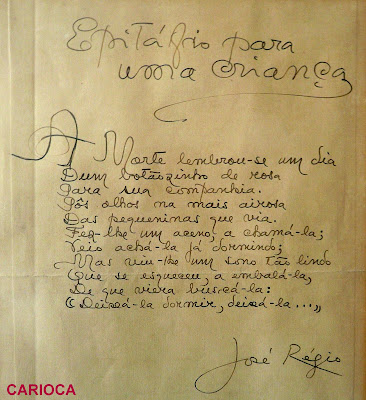 Epitáfio para
uma criança
A Morte lembrou-se um dia
Dum botãozinho de rosa
Para sua companhia.
Pôs olhos na mais airosa
Das pequeninas que via.
Fez-lhe um aceno, a chamá-la;
Veio achá-la já dormindo;
Mas viu-lhe um sono tão lindo
Que se esqueceu, a embalá-la,
De que viera buscá-la:
«Deixá-la dormir, deixá-la...»
José Régio
CARIOCA